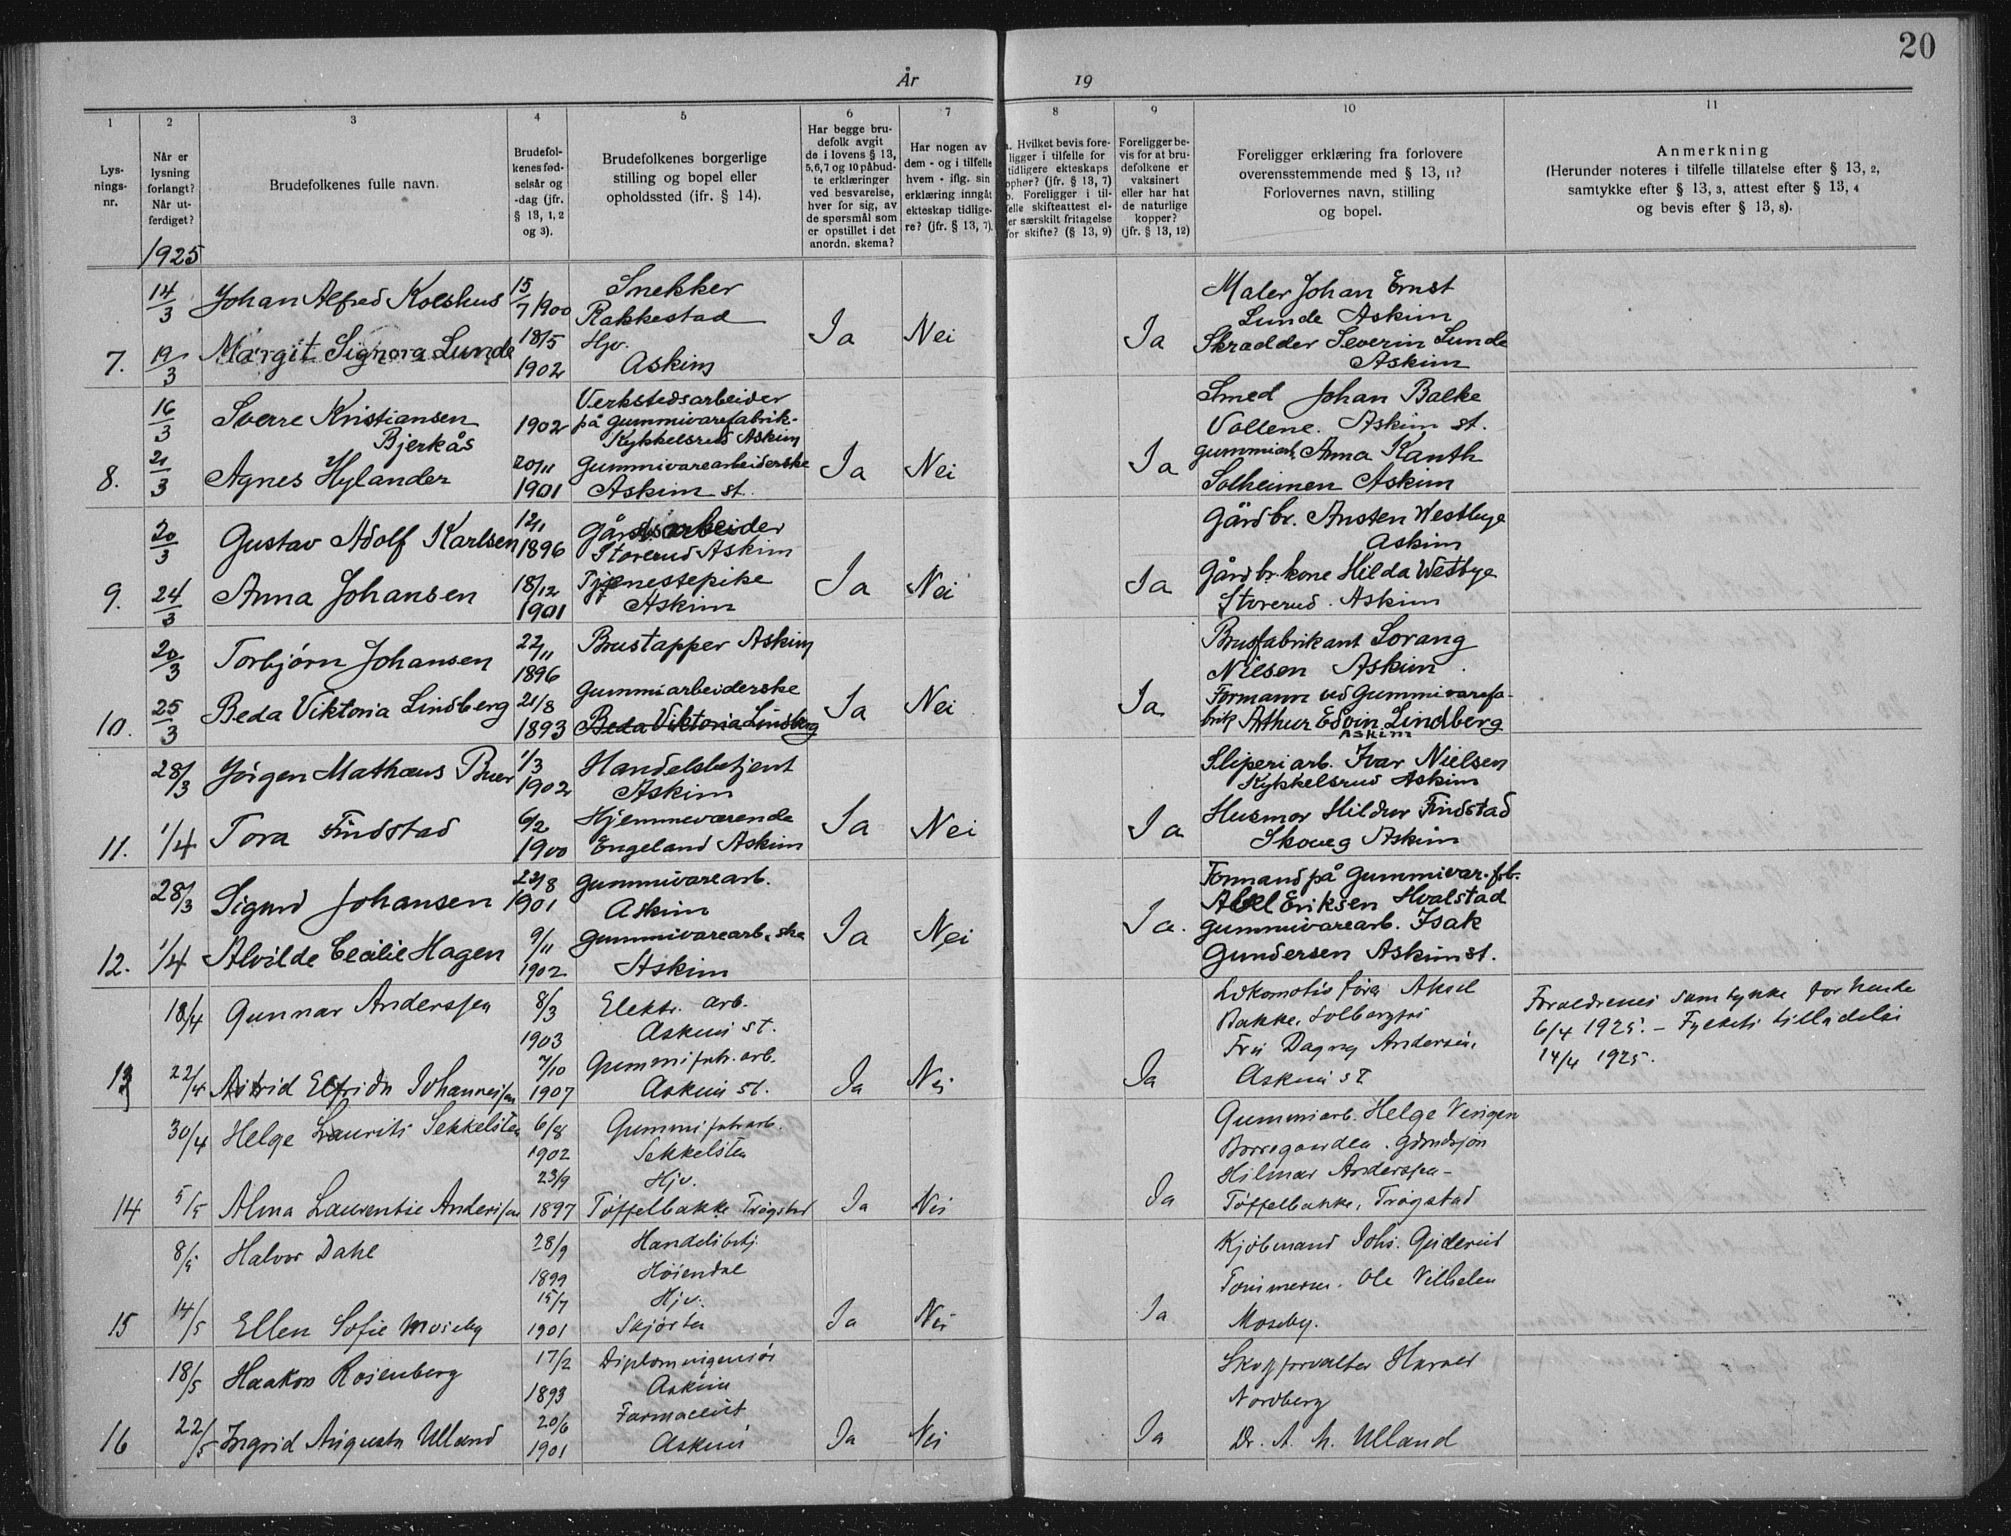 20
År 19
1 2 3 4 5 6 7 8 9 10 11
Lys-
nings-
nr.
Når er
lysning
forlangt?
Når ut-
ferdiget?
Brudefolkenes fulle navn.
Brudefol-
kenes fød-
selsår og
-dag (jfr.
§ 13, 1, 2
og 3).
Brudefolkenes borgerlige
stilling og bopel eller
opholdssted (jfr. § 14).
Har begge bru-
defolk avgit
de i lovens § 13,
5,6,7 og 10 påbud-
te erklæringer
ved besvarelse,
hver for sig, av
de spørsmål som
er opstillet i det
anordn. skema?
Har nogen av
dem - og i tilfelle
hvem - iflg. sin
erklæring inngåt
ekteskap tidlige-
re? (jfr. § 13, 7).
a. Hvilket bevis fore-
ligger i tilfelle for
tidligere ekteskaps
ophør? (jfr. § 13, 7)
b. Foreligger i til-
felle skifteattest el-
ler særskilt fritagelse
for skifte? (§ 13, 9)
Foreligger be-
vis for at bru-
defolkene er
vaksinert
eller har hat
de naturlige
kopper?
(jfr. § 13, 12)
Foreligger erklæring fra forlovere
overensstemmende med § 13, 11?
Forlovernes navn, stilling
og bopel.
Anmerkning
(Herunder noteres i tilfelle tillatelse efter § 13, 2,
samtykke efter § 13, 3, attest efter § 13, 4
og bevis efter § 13, 8).
1925
7.
14/3
19/3
Johan Alfred Kolshus
Margit Signora Lunde
15/7 1900
18/5
1902
Snekker
Rakkestad
Hjv.
Askim
Ja Nei Ja
Maler Johan Ernst
Lunde Askim
Skrædder Severin Lunde
Askim
8.
16/3
21/3
Sverre Kristiansen
Bjerkås
Agnes Hylander
1902
20/11
1901
Verkstedsarbeider
på gummivarefabrik-
Kykkelsrud Askim
Gummivarearbeiderske
Askim st.
Ja Nei Ja
Smed Johan Balke
Vollene. Askim st.
gummiarb. Anna Kanth
Solheimen Askim
9.
20/3
24/3
Gustav Adolf Karlsen
Anna Johansen
12/1
1896
18/12
1901
Gårdsarbeider
Storerud Askim
Tjenestepike
Askim
Ja Nei Ja
Gårdbr. Ansten Westbye
Askim
Gårdbr. kone Hilda Westbye
Storerud. Askim
10.
20/3
25/3
Torbjørn Johansen
Beda Viktoria Lindberg
22/11
1896
21/8
1893
Brustapper Askim
Gummiarbeiderske
Beda Viktoria Lindberg
Ja Nei Ja
Brusfabrikant Lorang
Nilsen Askim.
Formann ved Gummivarefa-
brik Arthur Edvin Lindberg
Askim
11.
28/3
1/4
Jørgen Mathæus Buer
Tora Findstad
1/3
1902
6/2
1900
Handelsbetjent
Askim
Hjemmeværende
Engeland Askim
Ja Nei Ja
Sliperiarb. Ivar Nielsen
Kykkelsrud Askim
Husmor Hildur Findstad
Skoveg Askim
12.
28/3
1/4
Sigurd Johansen
Alvilde Cecilie Hagen
23/8
1901
9/11
1902
Gummivarearb.
Askim
Gummivarearb.ske
Askim
Ja Nei Ja.
Formand på Gummivar.fab.
Abel Eriksen Hvalstad
gummivarearb. Isak
Gundersen Askim st.
13
18/4
22/4
Gunnar Anderssen
Astrid Elfrida Johannessen
8/3
1903
7/10
1907
Elektr. arb.
Askim st.
Gummifabr. arb.
Askim st.
Ja Nei Ja
Lokomotivfører Aksel
Bakke, Solbergfos
Fru Dagny Andersen,
Askim st
Forældrenes samtykke for hende
6/4 1925. - Fylkets tilladelse
14/4 1925.
14
30/4
5/5
Helge Laurits Sekkelsten
Alma Laurentie Anderssen
6/8
1902
23/9
1897
Gummifabrarb.
Sekkelsten
Hjv.
Tøffelbakke Trøgstad
Ja Nei Ja
Gummiarb. Helge
Hilmar Anderssen -
Tøffelbakke, Trøgstad
15
8/5
14/5
Halvor Dahl
Ellen Sofie Moseby
28/9
1899
15/7
1901
Handelsbetj
Høiendal
Hjv.
Skjørten
Ja Nei Ja
Kjøbmand Johs. Guderud
Tømmerm. Ole Vilhelm
Moseby.
16
18/5
22/5
Haakon Rosenberg
Ingrid Augusta Ulland
17/2
1893
20/6
1901
Diplomingeniør
Askim
Farmaceut
Askim
Ja Nei Ja
Skogforvalter Harald
Nordberg
Dr. A. M. Ulland